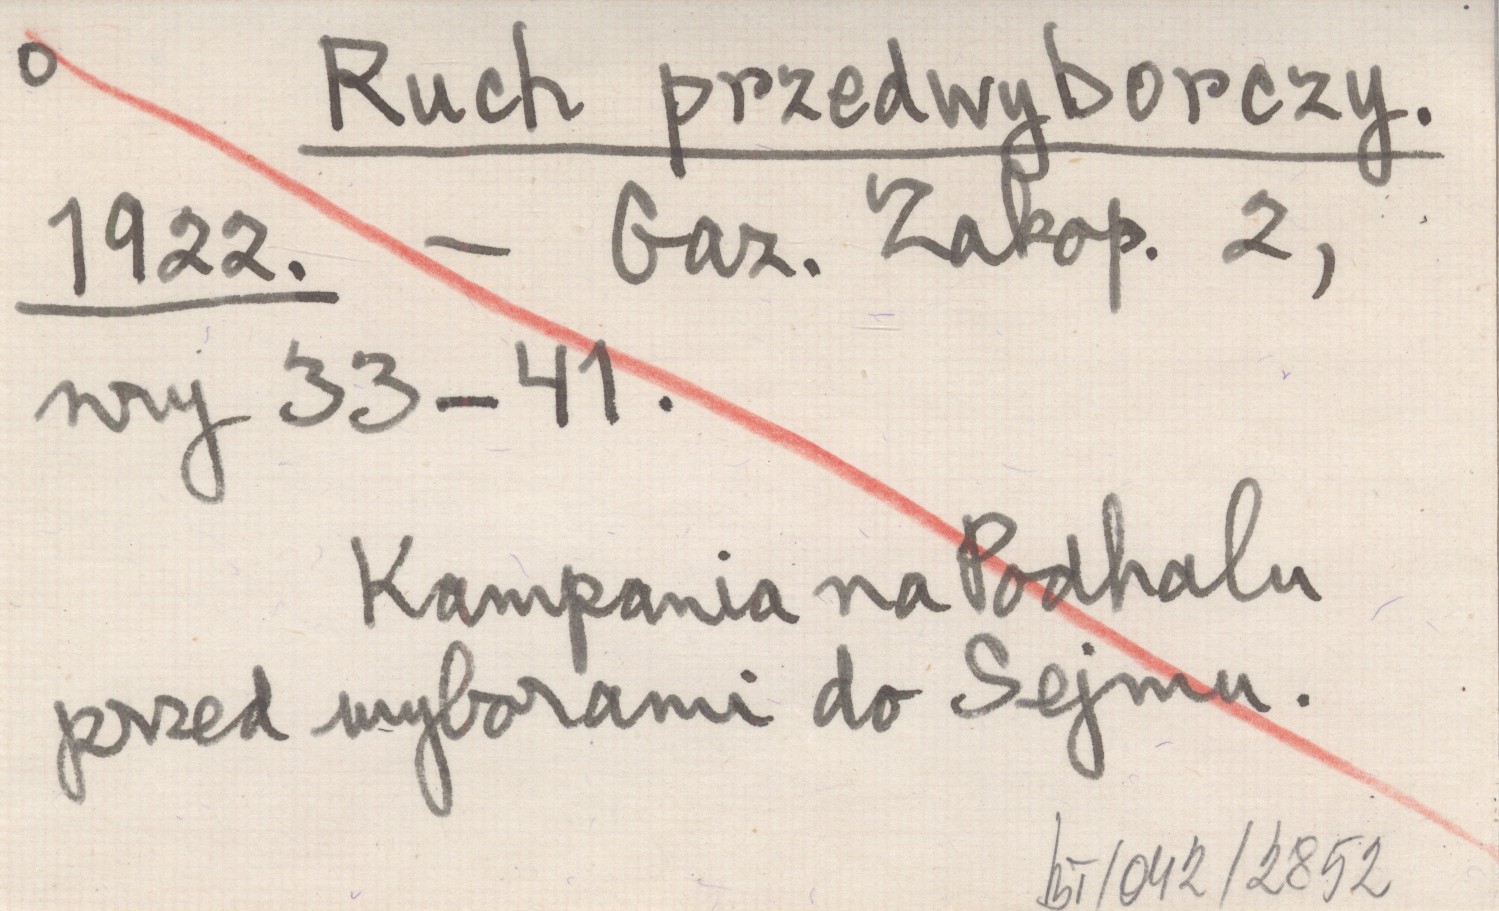 o Ruch przedwyborczy.
1922. – Gaz. Zakop. 2,
nry 33–41.
Kampania na Podhalu
przed wyborami do Sejmu.
/042/2852